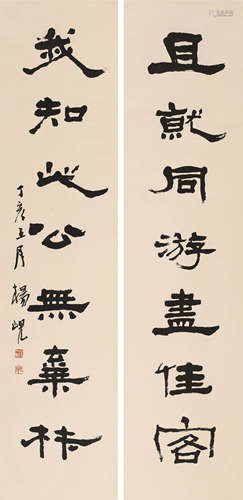 且就同游盡佳客
我知此公無棄材
丁亥五月
楊